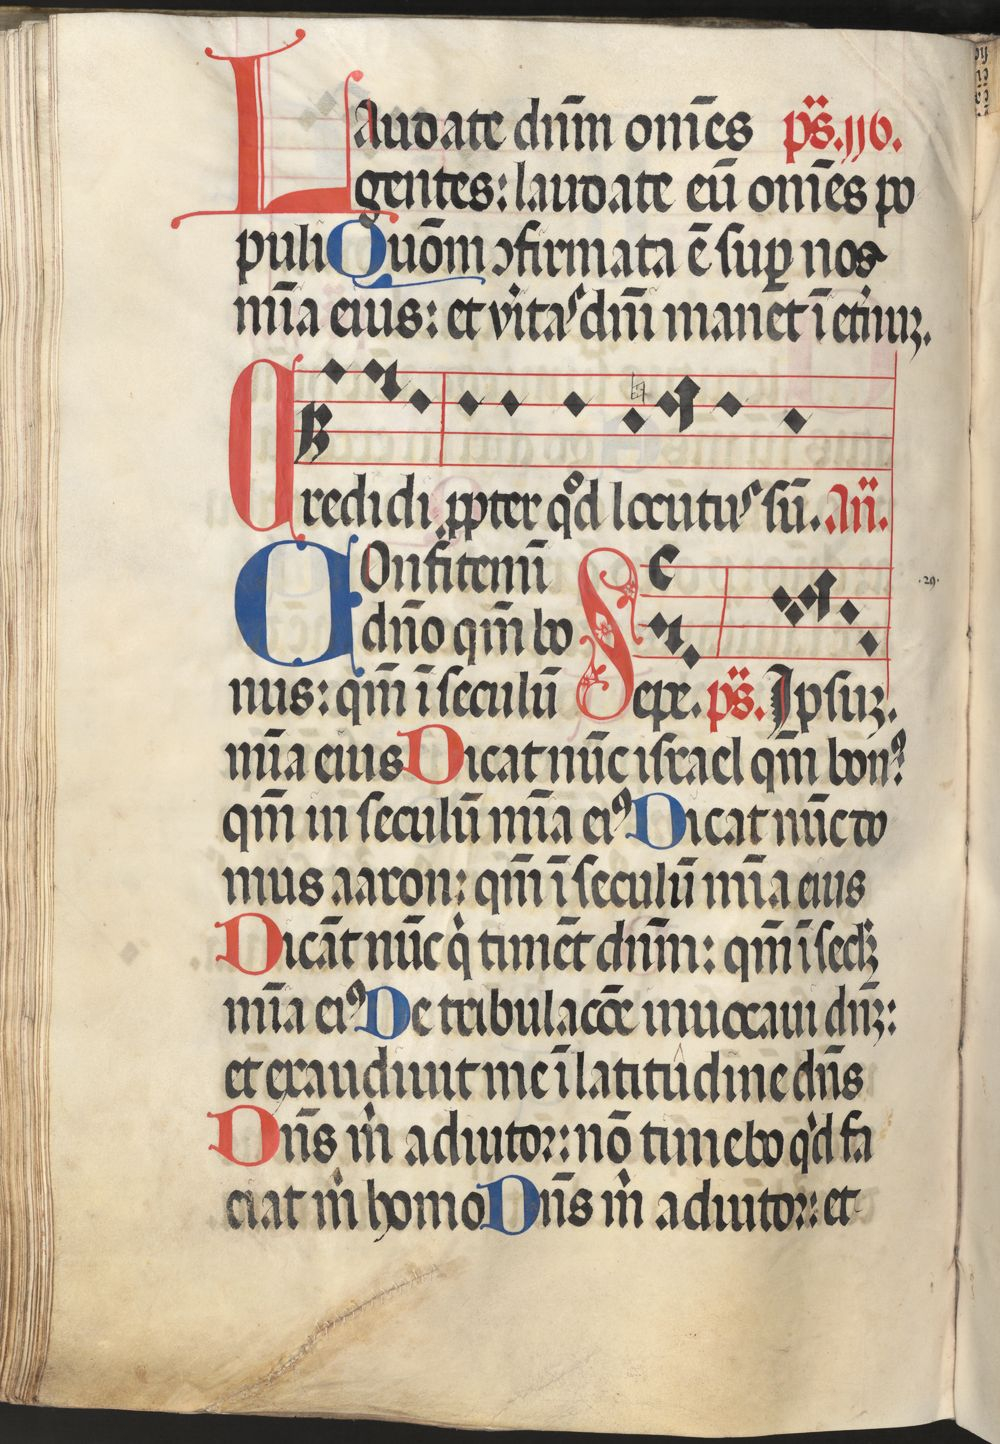 Laudate dn̄m om̄es ps. 116.
gentes: laudate eū om̄es po
puli Quōm ꝯfirmata ē suꝑ nos
mīa eius: et vitas dn̄i manet ī et̄nuꝫ.
Credidi ꝓpter qd locutus sū. An̄.
Confitemī
dn̄o qm̄ bo
nus: qm̄ ī seculū Sepe. ps. Ipsuꝫ.
mīa eius Dicat nūc israel qm̄ bonꝰ
qm̄ in seculū mīa eiꝰ Dicat nūc do
mus aaron: qm̄ ī seculū mīa eius
Dicāt nūc q̇ timēt dn̄m: qm̄ ī secłꝫ
mīa eiꝰ De tribulacōe inuocaui dn̄ꝫ:
et exaudiuit me ī latitudine dn̄s
Dn̄s m̄ adiutor: nō timebo qd fa
ciat m̄ homo Dn̄s m̄ adiutor: et
.29.